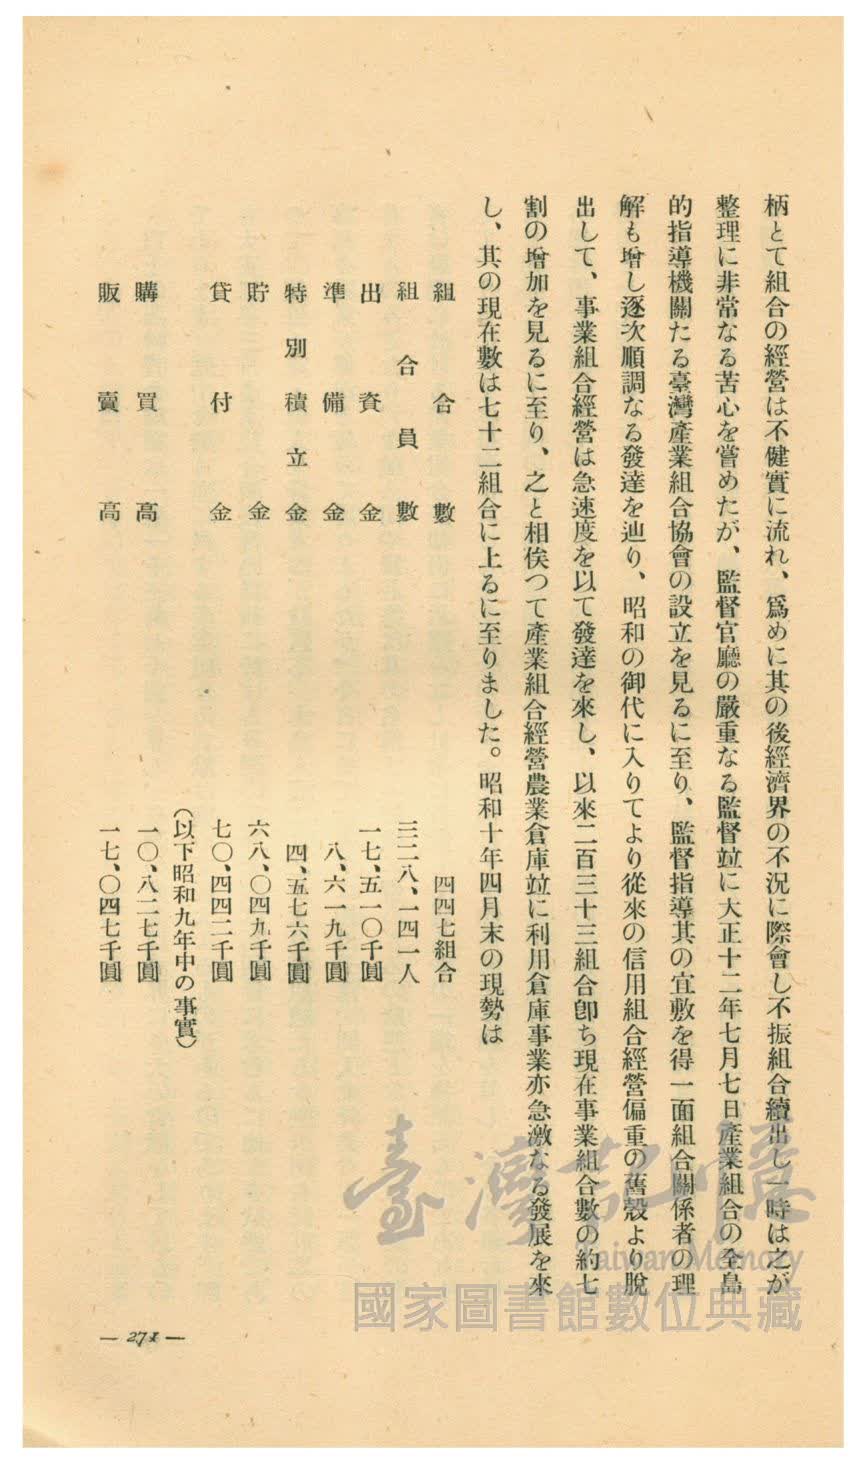 柄とて組合の經營は不健實に流れ、爲めに其の後經濟界の不況に際會し不振組合續出し一時は之が
整理に非常なる苦心を嘗めたが、監督官廳の嚴重なる監督竝に大正十二年七月七日產業組合の全島
的指導機關たる臺灣產業組合協會の設立を見るに至り、監督指導其の宜敷を得一面組合關係者の理
解も增し逐次順調なる發達を辿り、昭和の御代に入りてより從來の信用組合經營偏重の舊殼より脫
出して、事業組合經營は急速度を以て發達を來し、以來二百三十三組合卽ち現在事業組合數の約七
割の增加を見るに至り、之と相俟つて產業組合經營農業倉庫竝に利用倉庫事業亦急激なる發展を來
し、其の現在數は七十二組合に上るに至りました。昭和十年四月末の現勢は
組合數 四四七組合
組合員數 三二八、一四一人
出資金 一七、五一〇千圓
準備金 八、六一九千圓
特別積立金 四、五七六千圓
貯金 六八、〇四九千圓
貸付金 七〇、四四二千圓
(以下昭和九年中の事實)
購買高 一〇、八二七千圓
販賣高 一七、〇四七千圓
— 271 —
臺灣記憶
Taiwan Memory
國家圖書館數位典藏